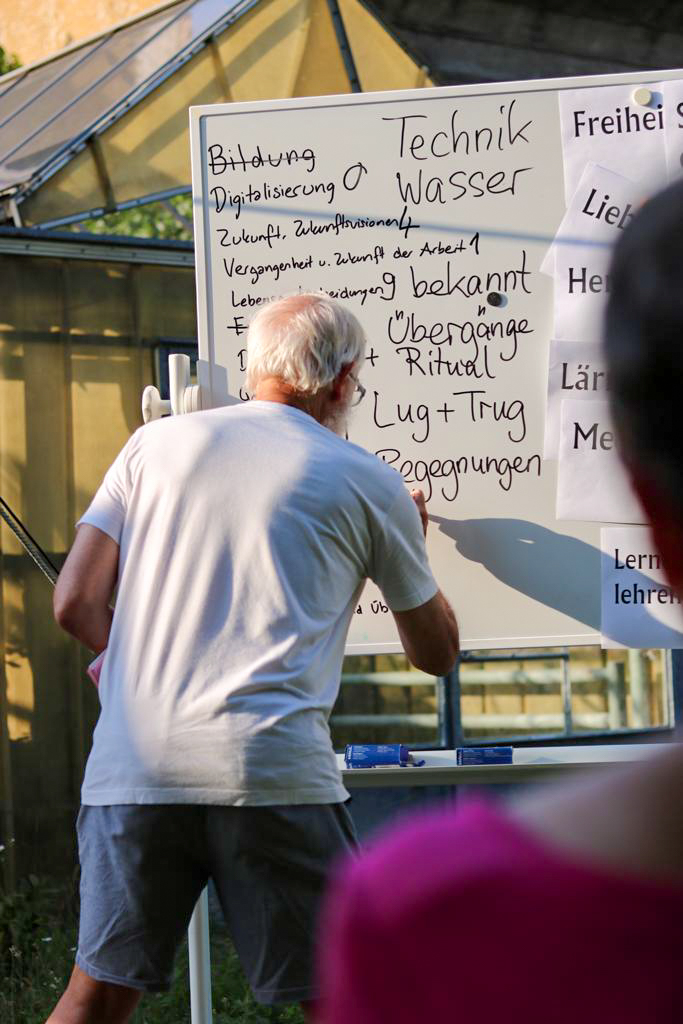 Bildung
Digitalisierung 0
Zukunft, Zukunftsvisionen 4
Vergangenheit u. Zukunft der Arbeit 1
9
+
Technik
Wasser
bekannt
Übergänge
Ritual
Lug + Trug
Begegnungen
Üb
Freihei
Lieb
He
Lär
Me
Lern
lehren